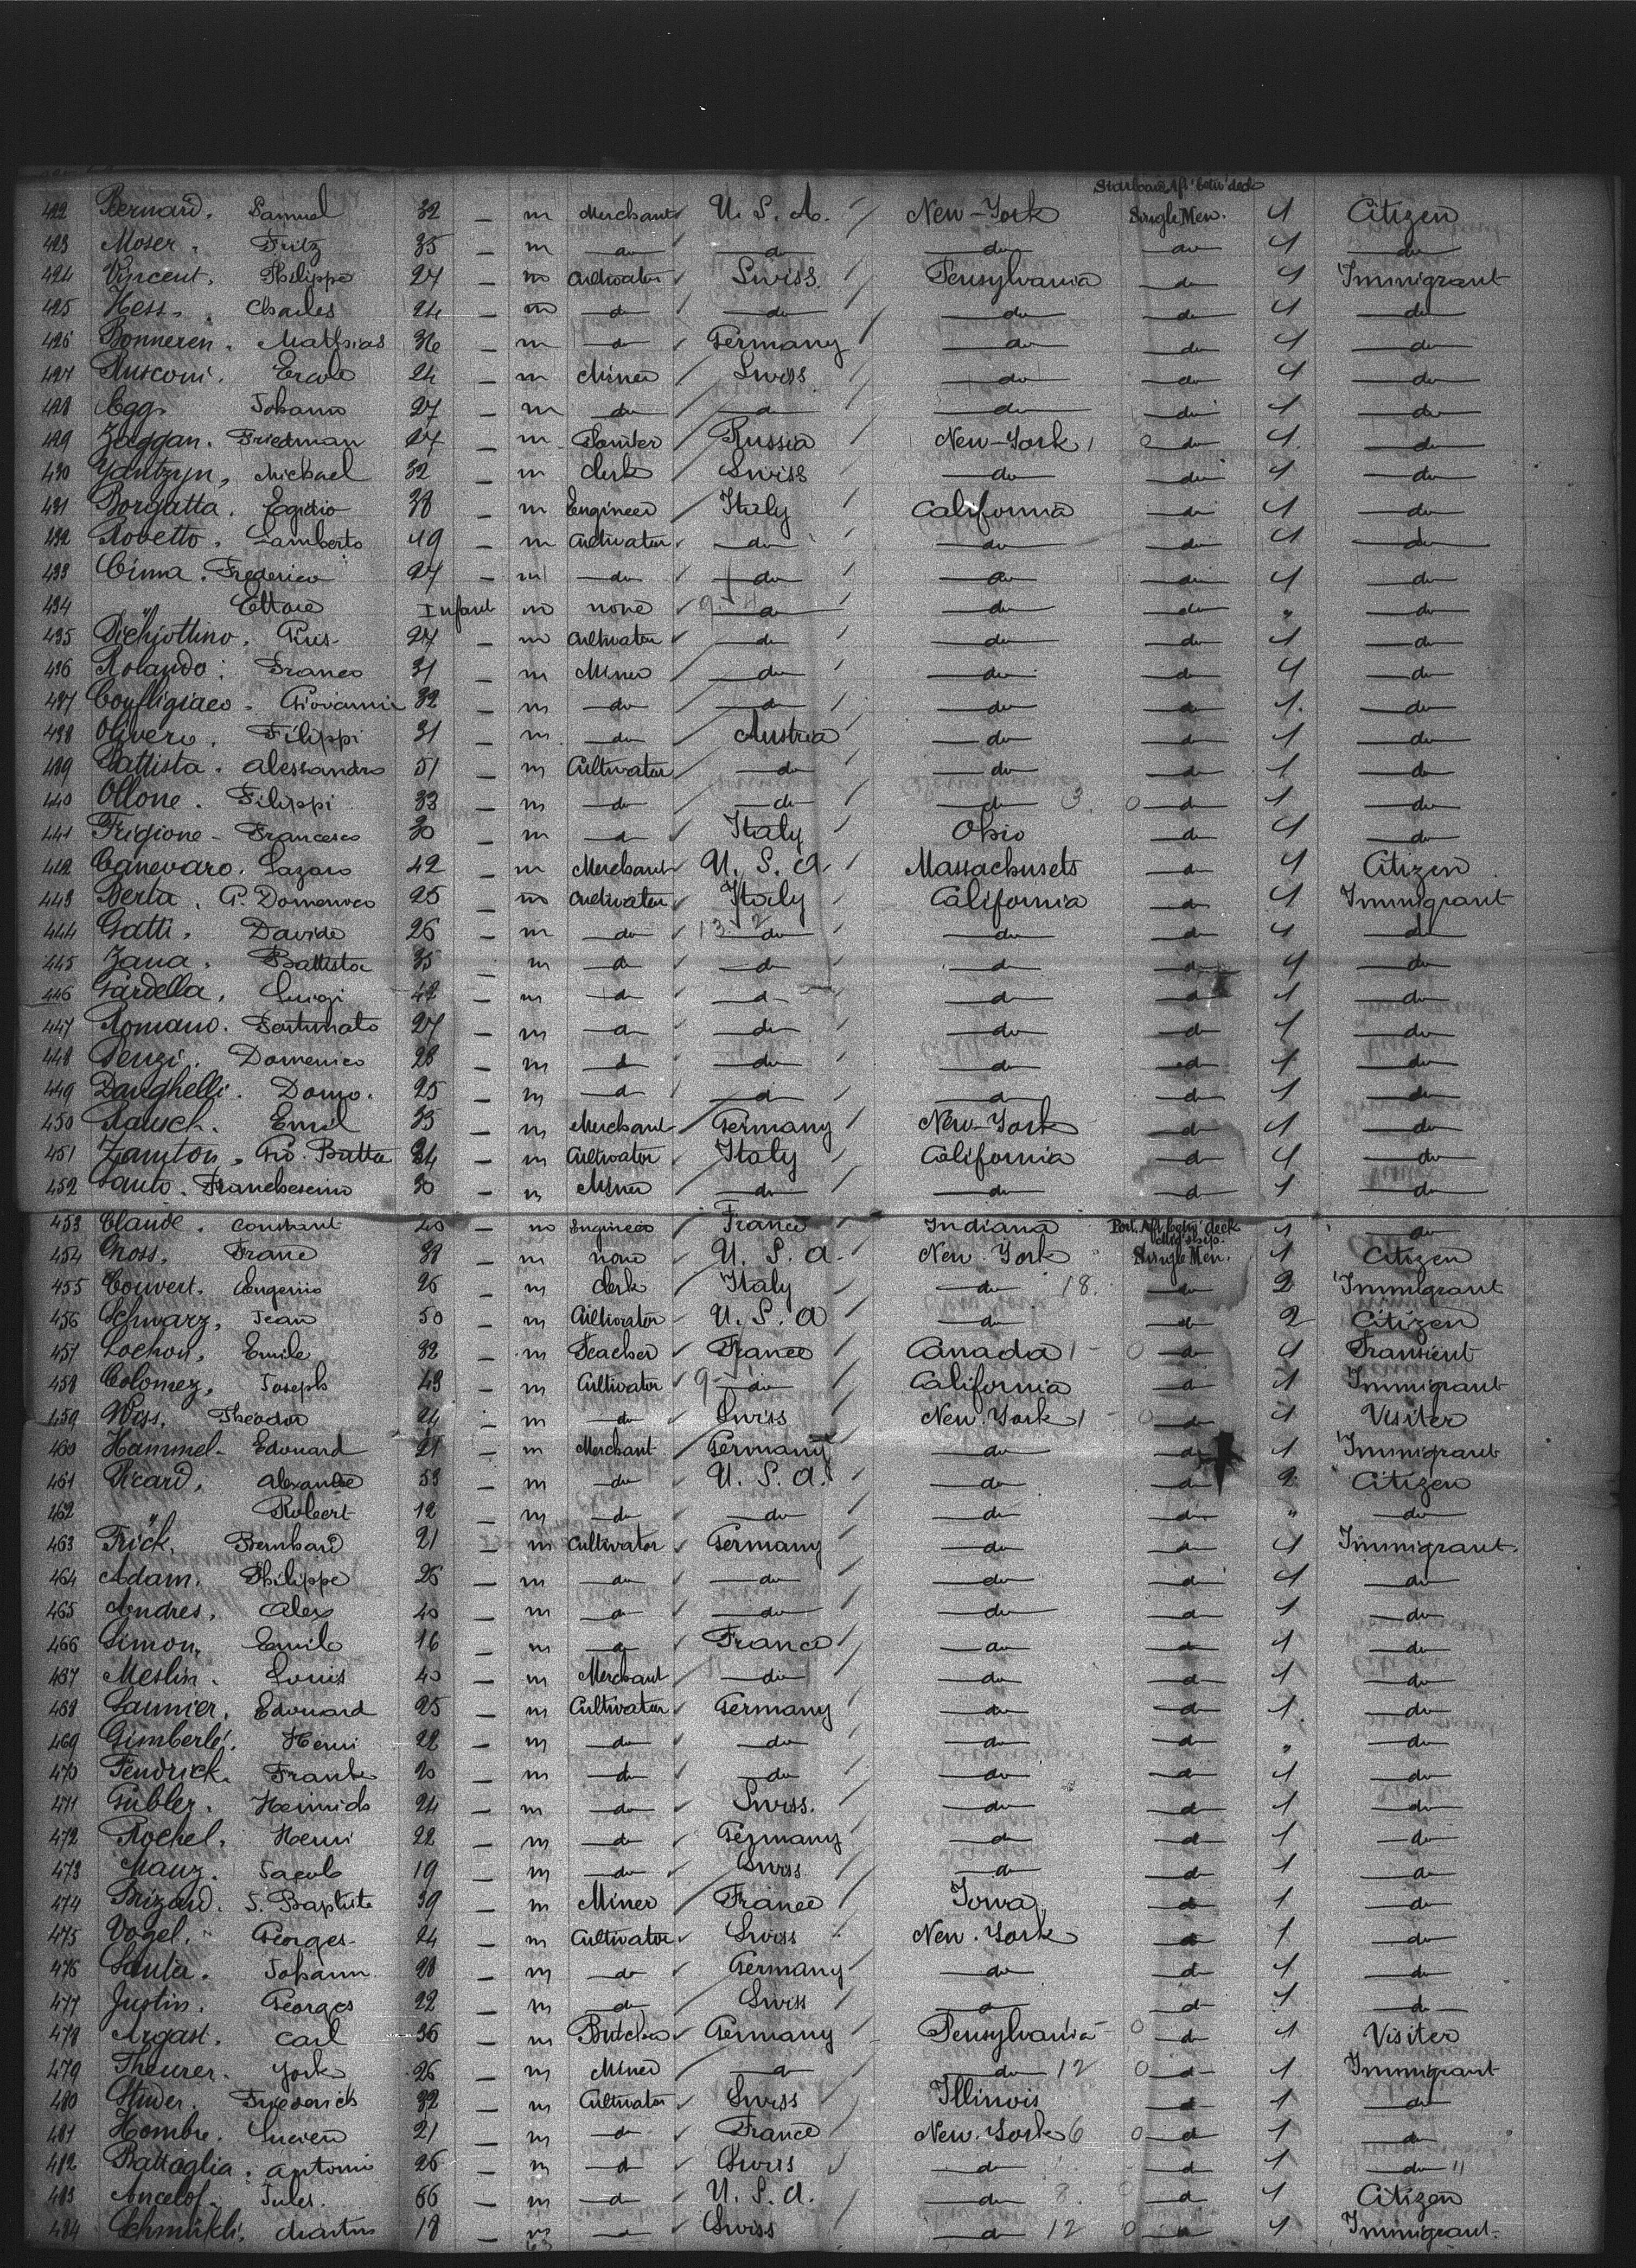 Starboard Aft betw' deck
422 Bernard. Samuel 32 — m Merchant U. S. A. New-York Single Men. 1 Citizen
423 Moser. Fritz 35 — m do do do do 1 do
424 Vincent. Philippe 27 — m Cultivator Swiss. Pensylvania do 1 Immigrant
425 Hess. Charles 24 — m do do do do 1 do
426 Bonneren. Mathias 36 — m do Germany do do 1 do
427 Rusconi. Ercole 24 — m Miner Swiss do do 1 do
428 Egg. Johann 27 — m do do do do 1 do
429 Zaggan. Friedman 27 — m Painter Russia New-York do 1 do
430 Yantzyn, Michael 32 — m Clerk Swiss do do 1 do
431 Borgatta. Egidio 38 — m Engineer Italy California do 1 do
432 Rovetto. Lamberto 49 — m Cultivator do do do 1 do
433 Cima. Frederico 27 — m do do do do 1 do
434 " Ettore Infant m none do do do " do
435 Dichiottino. Pius 27 — m Cultivator do do do 1 do
436 Rolando. Franco 31 — m Miner do do do 1 do
437 Confligiaco. Giovanni 32 — m do do do do 1 do
438 Olivero. Filippi 31 — m do Austria do do 1 do
439 Battista. Alessandro 51 — m Cultivator do do do 1 do
440 Ollone. Filippi 33 — m do do do 3. 0 do 1 do
441 Frigione - Francesco 30 — m do Italy Ohio do 1 do
442 Canevaro. Lazaro 42 — m Merchant U. S. A. Massachusets do 1 Citizen
443 Berta. G. Domenico 25 — m Cultivator Italy California do 1 Immigrant
444 Gatti. Davide 26 — m do do do do 1 do
445 Zana. Battista 35 — m do do do do 1 do
446 Gardella. Luigi 42 — m do do do do 1 do
447 Romano. Fortunato 27 — m do do do do 1 do
448 Penzi. Domenico 28 — m do do do do 1 do
449 Danghelli. Domo. 25 — m do do do do 1 do
450 Rausch. Emil 35 — m Merchant Germany New-York do 1 do
451 Zamton. Gio. Batta 34 — m Cultivator Italy California do 1 do
452 Santo. Francheseino 30 — m Miner do do do 1 do
453 Claude. Constant 20 — m Engineer France Indiana Port. Aft betw' deck 1 do
454 Gross. Franc 38 — m none U. S. A. New. York Single Men. 1 Citizen
455 Convert. Eugenio 26 — m Clerk Italy do 18. do 2 Immigrant
456 Schwarz, Jean 50 — m Cultivator U. S. A do do 2 Citizen
457 Lochon, Emile 32 — m Teacher France Canada 1 0 do 1 Transient
458 Colomez, Joseph 43 — m Cultivator do California do 1 Immigrant
459 Wiss. Theodor 24 — m do Swiss New. York 1 0 do 1 Visiter
460 Hammel - Edouard 21 — m Merchant Germany do do 1 Immigrant
461 Ricard, Alexandre 53 — m do U. S. A. do do 2 Citizen
462 " Robert 12 — m do do do do " do
463 Frick. Bernhard 21 — m Cultivator Germany do do 1 Immigrant.
464 Adam. Philippe 26 — m do do do do 1 do
465 Andres. Alex 40 — m do do do do 1 do
466 Simon, Emile 16 — m do France do do 1 do
467 Meslin. Louis 40 — m Merchant do do do 1 do
468 Saunier. Edouard 25 — m Cultivator Germany do do 1 do
469 Gimberlé. Henri 22 — m do do do do " do
470 Fendrick. Frank 20 — m do do do do 1 do
471 Gubler. Heinrich 24 — m do Swiss. do do 1 do
472 Rochel. Henri 22 — m do Germany do do 1 do
473 Manz. Jacob 19 — m do Swiss do do 1 do
474 Brizard. S. Baptiste 39 — m Miner France Iowa do 1 do
475 Vogel. Georges 24 — m Cultivator Swiss New. York do 1 do
476 Johann 28 — m do Germany do do 1 do
477 Justin. Georges 22 — m do Swiss do do 1 do
478 Argast. Carl 36 — m Butcher Germany Pensylvania 0 do 1 Visiter
479 Theurer. York 26 — m Miner do do 12 0 do 1 Immigrant
480 Studer. Frederick 32 — m Cultivator Swiss Illinois do 1 do
481 Hombre. Lucien 21 — m do France New. York 6 0 do 1 do
482 Battaglia. Antonio 26 — m do Swiss do do 1 do "
483 Ancelot. Jules. 66 — m do U. S. A. do 8. do 1 Citizen
484 Schmükli. Martin 18 — m do Swiss do 12 0 do 1 Immigrant.